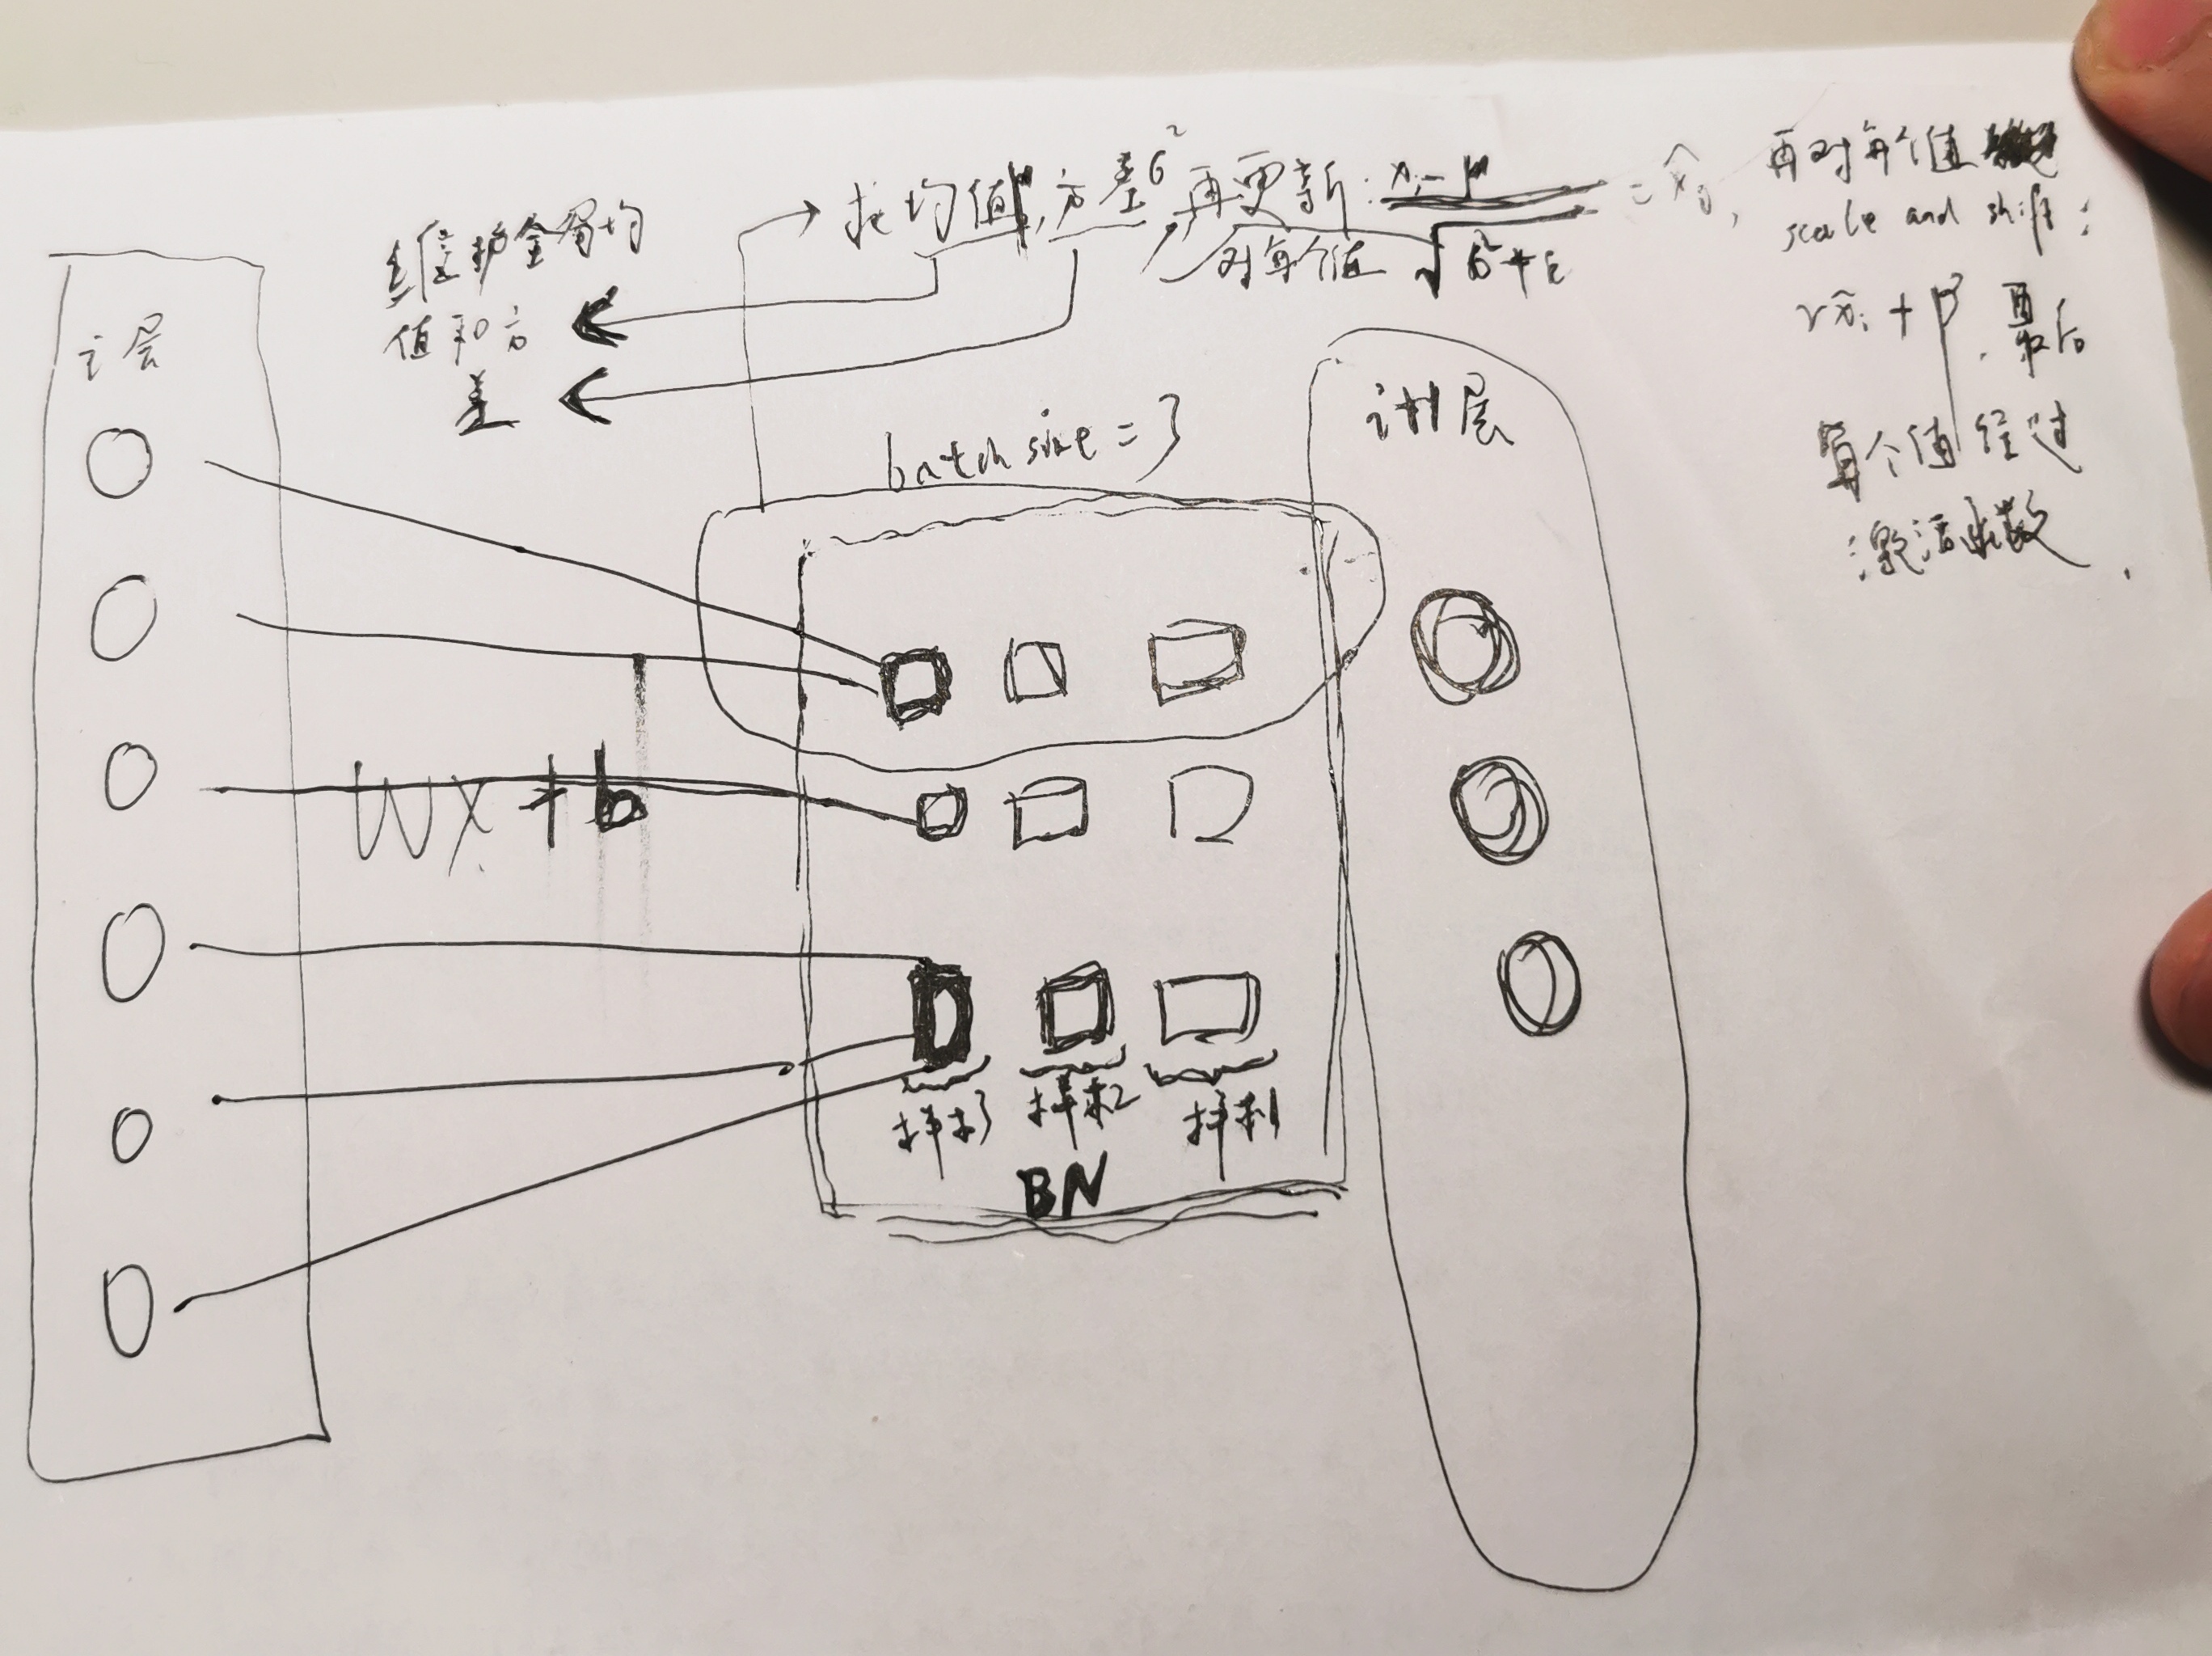 求均值μ,方差σ²再更新: xᵢ-μ / √σ²+ε = x̂ᵢ,
对每个值
再对每个值
scale and shift:
γx̂ᵢ+β, 再最后
每个值经过
激活函数.
维护全局均
值和方
差
i层
batch size = 3
i+1层
wx+b
样本3 样本2 样本1
BN